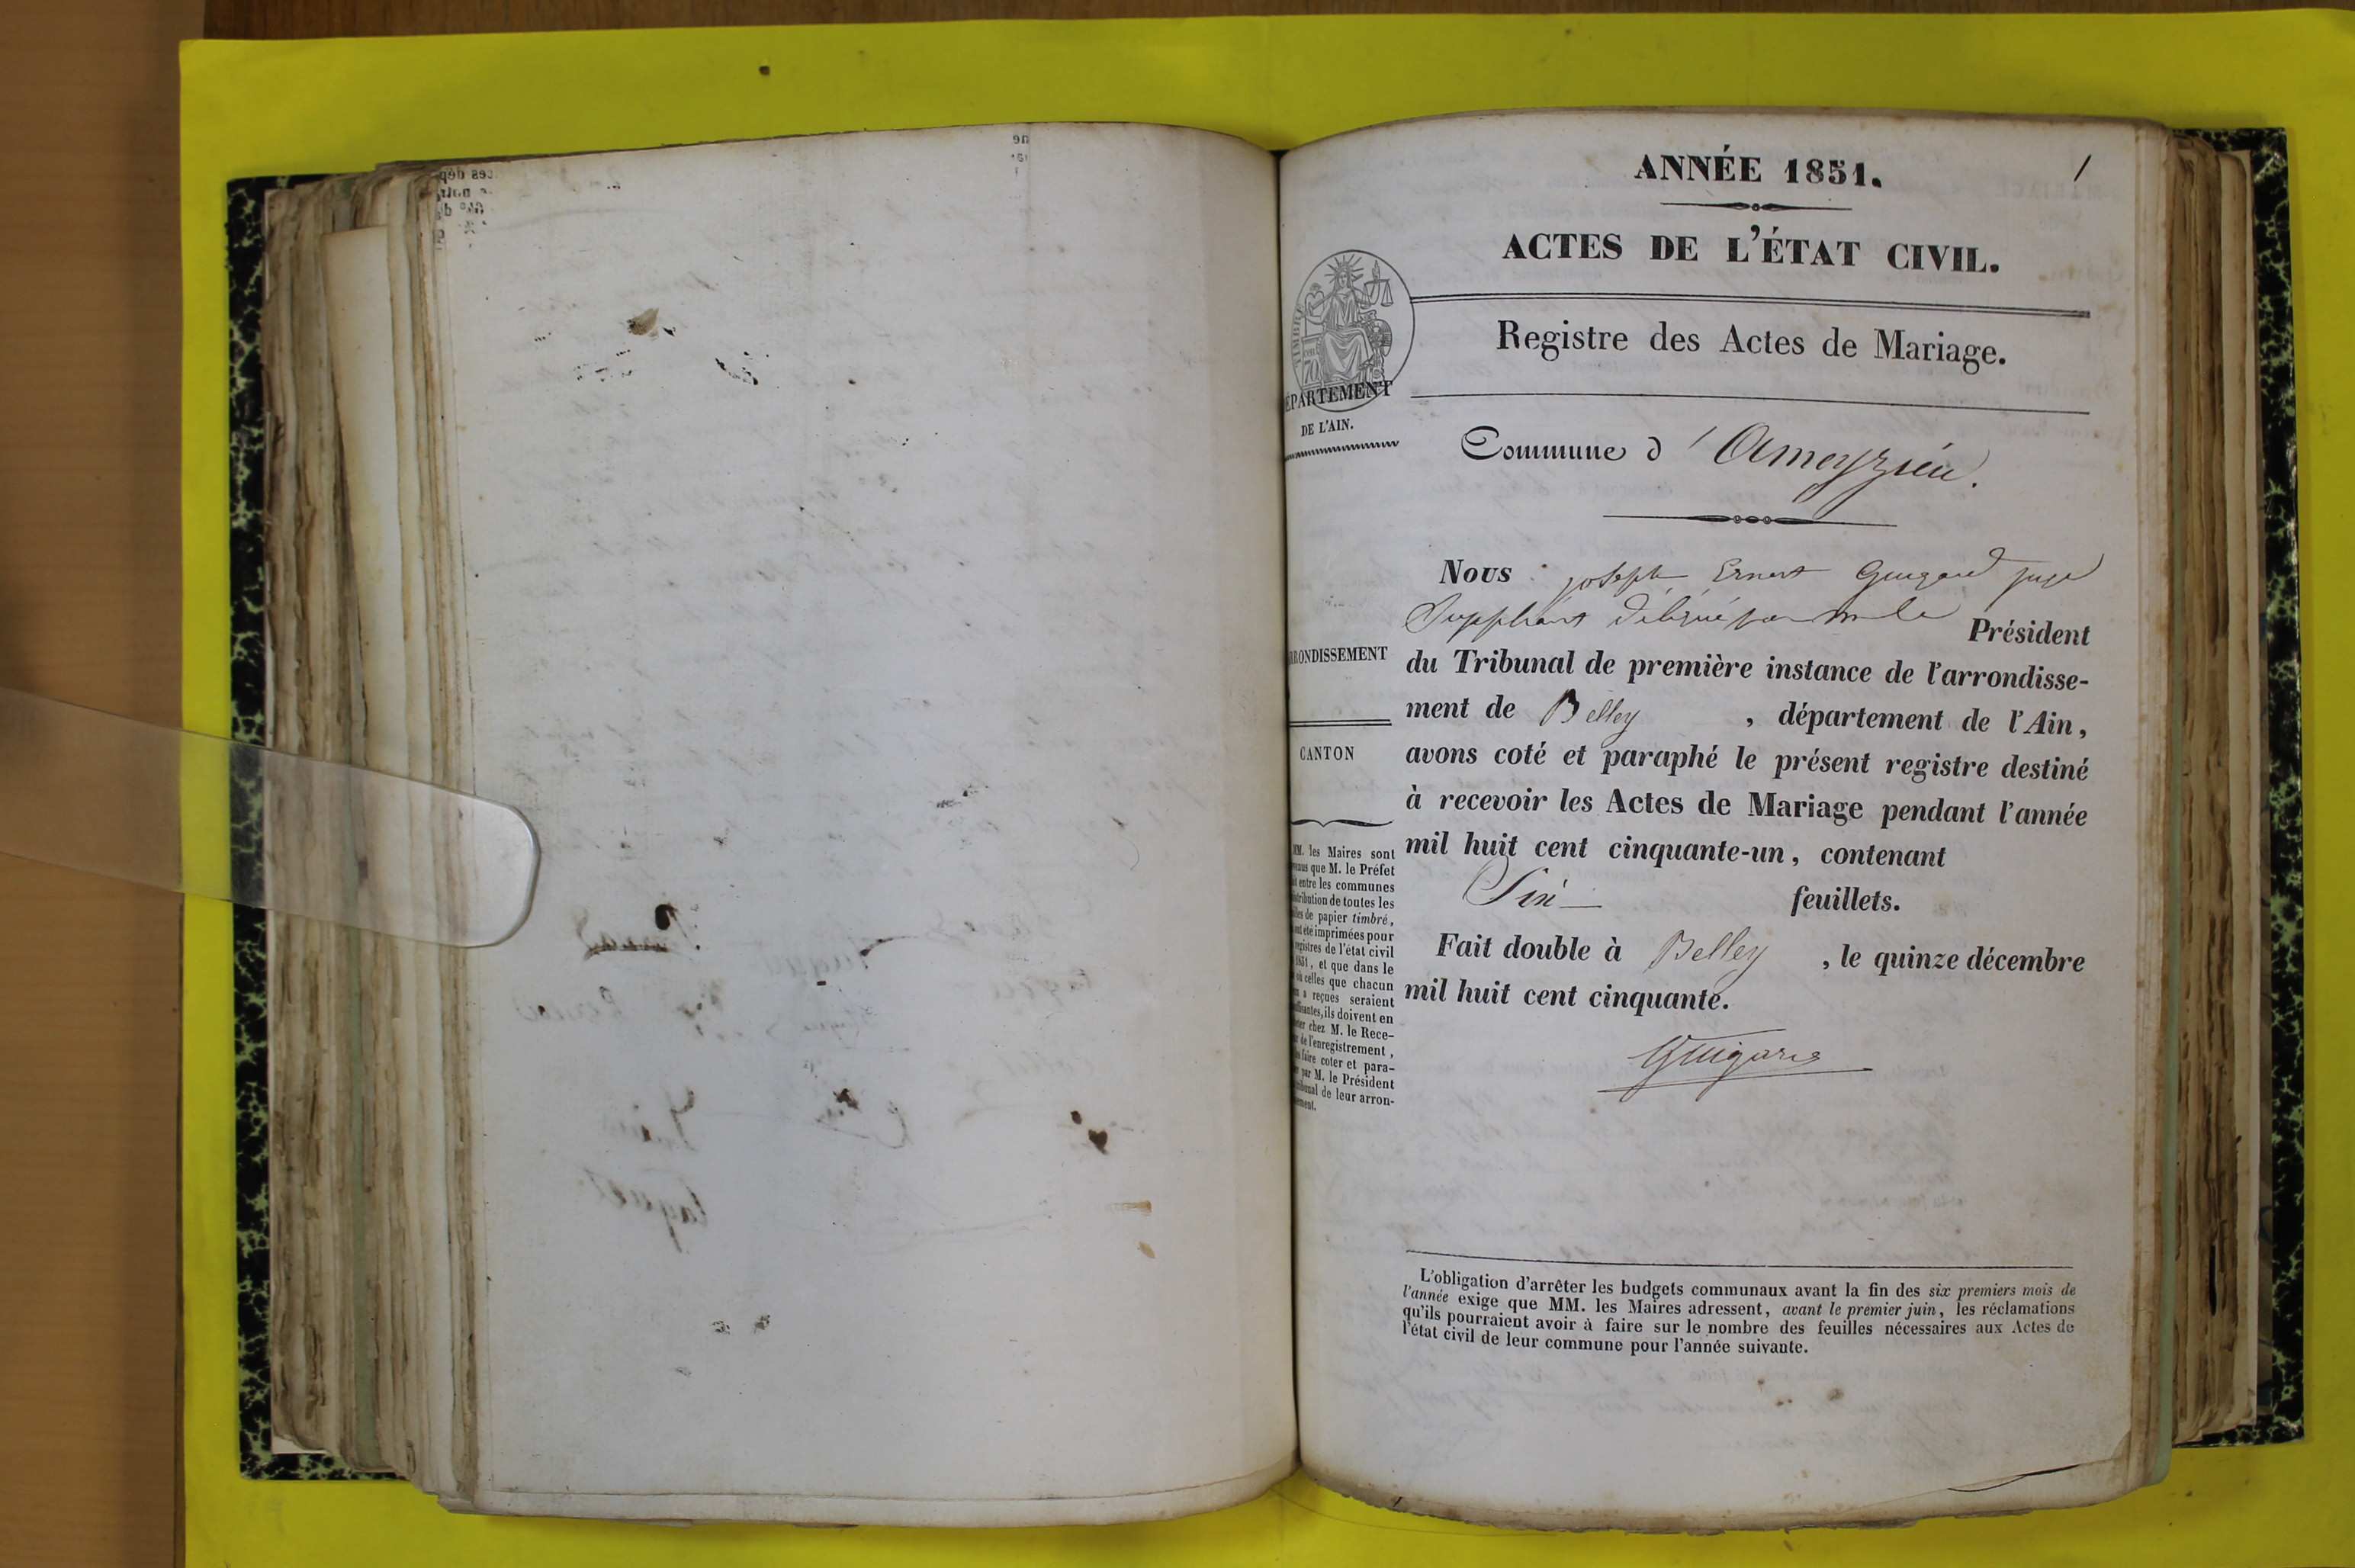 1
ANNÉE 1851.
ACTES DE L'ÉTAT CIVIL.
Registre des Actes de Mariage.
TIMBRE
70
ÉPARTEMENT
DE L'AIN.
Commune d'Ameyzieu.
Nous joseph Ernest Guigard juge
Suppléant délégué par m le Président
du Tribunal de première instance de l'arrondisse-
ment de Belley , département de l'Ain,
avons coté et paraphé le présent registre destiné
à recevoir les Actes de Mariage pendant l'année
mil huit cent cinquante-un, contenant
Six feuillets.
Fait double à Belley , le quinze décembre
mil huit cent cinquante.
Guigard
RONDISSEMENT
CANTON
MM. les Maires sont
que M. le Préfet
entre les communes
tribution de toutes les
de papier timbré,
ont été imprimées pour
registres de l'état civil
1851, et que dans le
où celles que chacun
a reçues seraient
ils doivent en
chez M. le Rece-
de l'enregistrement,
faire coter et para-
par M. le Président
de leur arron-
L'obligation d'arrêter les budgets communaux avant la fin des six premiers mois de
l'année exige que MM. les Maires adressent, avant le premier juin, les réclamations
qu'ils pourraient avoir à faire sur le nombre des feuilles nécessaires aux Actes de
l'état civil de leur commune pour l'année suivante.